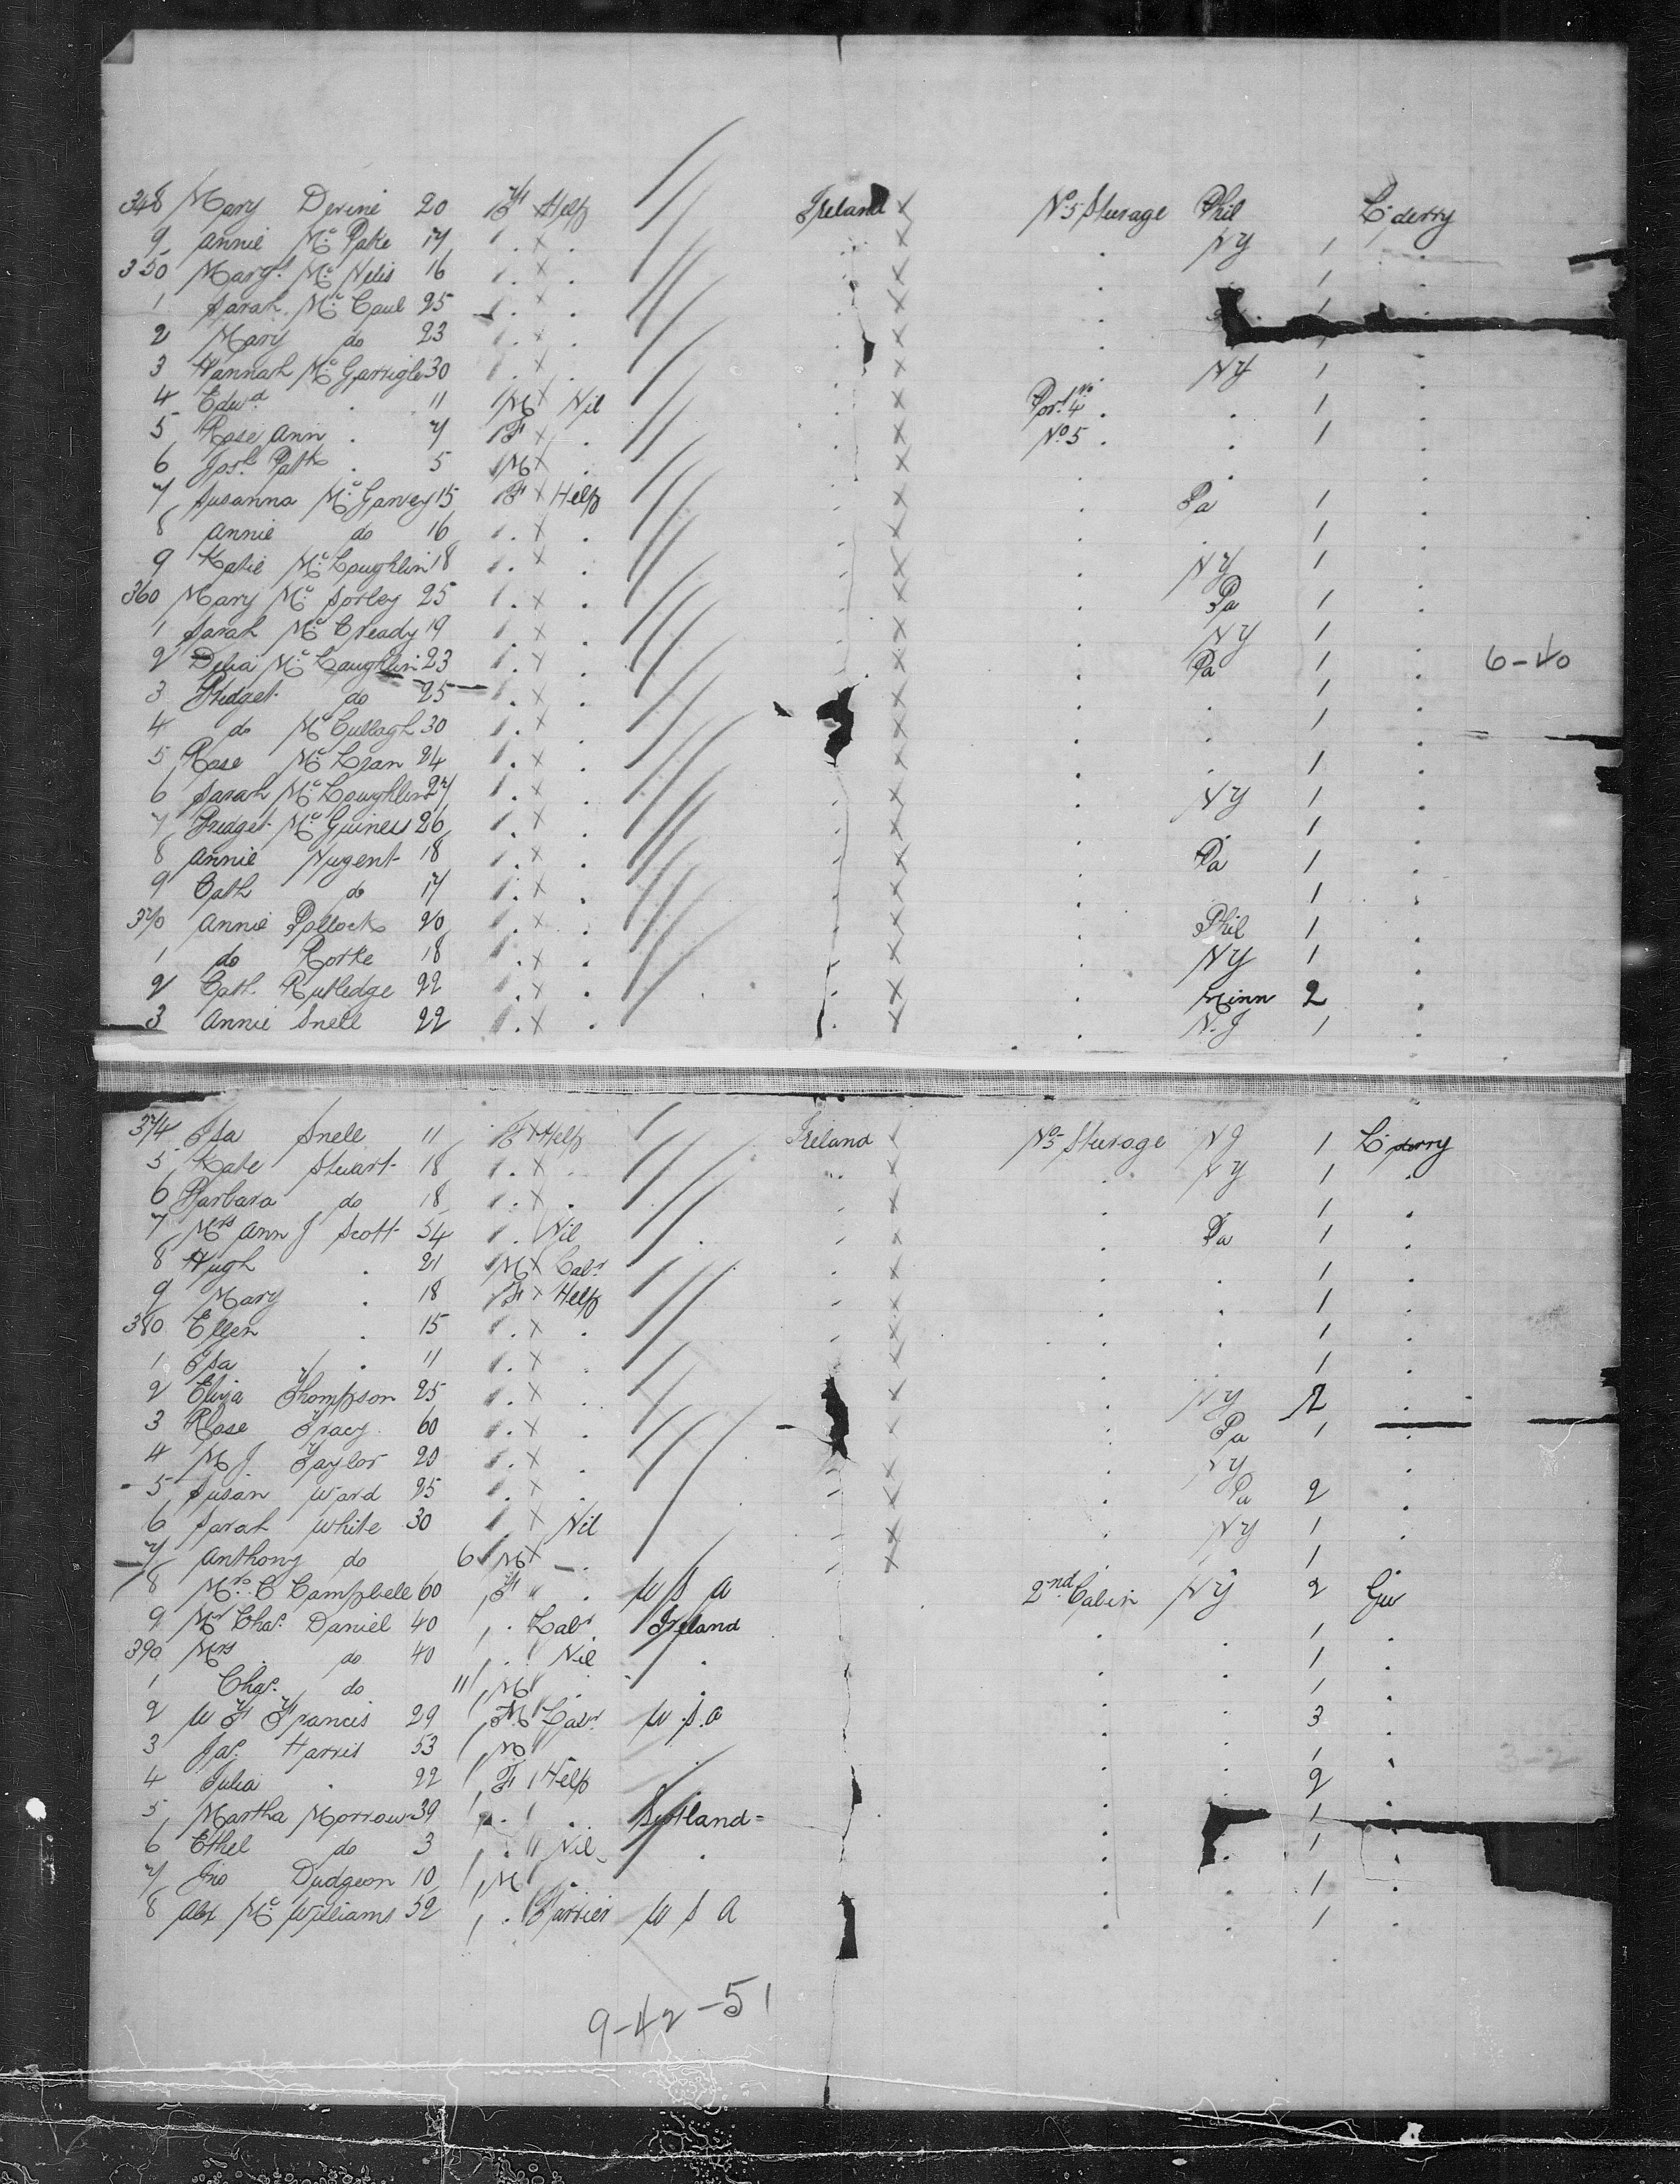 348 Mary Devine 20 F Help Ireland No 5 Sterage Phil L'derry
9 Annie Mc Pake 17 . . . . NY 1 .
350 Margt Mc Nelis 16 . . . . . 1 .
1 Sarah Mc Caul 25 . . . . 1 .
2 Mary do 23 . . . .
3 Hannah Mc Garrigle 30 . . . . NY 1 .
4 Edwd . 11 M Nil . Port No 4 . . 1 .
5 Rose Ann . 7 F . . No 5 . . 1 .
6 Josh Patk . 5 M . . . . .
7 Susanna Mc Garvey 15 F Help . . Pa 1 .
8 Annie do 16 . . . . . 1 .
9 Katie Mc Loughlin 18 . . . . NY 1 .
360 Mary Mc Sorley 25 . . . . Pa 1 .
1 Sarah Mc Cready 19 . . . . NY 1 .
2 Delia Mc Laughlin 23 . . . . Pa 1 . 6-40
3 Bridget do 25 . . . . . 1 .
4 do Mc Cullagh 30 . . . . . 1 .
5 Rose Mc Lran 24 . . . . . 1 .
6 Sarah Mc Loughlin 27 . . . . NY 1 .
7 Bridget Mc Guiness 26 . . . . . 1 .
8 Annie Nugent 18 . . . . Pa 1 .
9 Cath do 17 . . . . . 1 .
370 Annie Pollock 20 . . . . Phil 1 .
1 do Rorke 18 . . . . NY 1 .
2 Cath Rutledge 22 . . . . Minn 2 .
3 Annie Snell 22 . . . . N.J 1 .
374 Isa Snell 11 F Help Ireland No 5 Sterage NJ 1 L'derry
5 Kate Stuart 18 . . . . NY 1 .
6 Barbara do 18 . . . . . 1 .
7 Mrs Ann J Scott 54 . Nil . . Pa 1 .
8 Hugh . 21 M Labr . . . 1 .
9 Mary . 18 F Help . . . 1 .
380 Ellen . 15 . . . . . 1 .
1 Isa . 11 . . . . . 1 .
2 Eliza Thompson 25 . . . . NY 2 .
3 Rose Tracy 60 . . . . Pa 1 .
4 M J Taylor 20 . . . . NY .
5 Susan Ward 25 . . . . Pa 2 .
6 Sarah White 30 . Nil . . NY 1 .
7 Anthony do 6 M . . . . 1 .
8 Mrs C Campbell 60 F " . U S A 2nd Cabin NY 2 Gw
9 Mr Chas. Daniel 40 . Labr. Ireland . . 1 .
390 Mrs . do 40 . Nil . . . 1 .
1 Chas. do 11 M . . . . 1 .
2 W F Francis 29 M Labr. U.S.A . . 3 .
3 Jas. Harris 53 M . . . . 1 .
4 Julia . 22 F Help . . . 2 .
5 Martha Morrow 39 . . Scotland = . 1 .
6 Ethel do 3 . Nil . . . 1 .
7 Jno Dudgeon 10 M . . . 1 .
8 Alex Mc Williams 52 . Farrier U S A . . 1 .
3-2
9-42-51